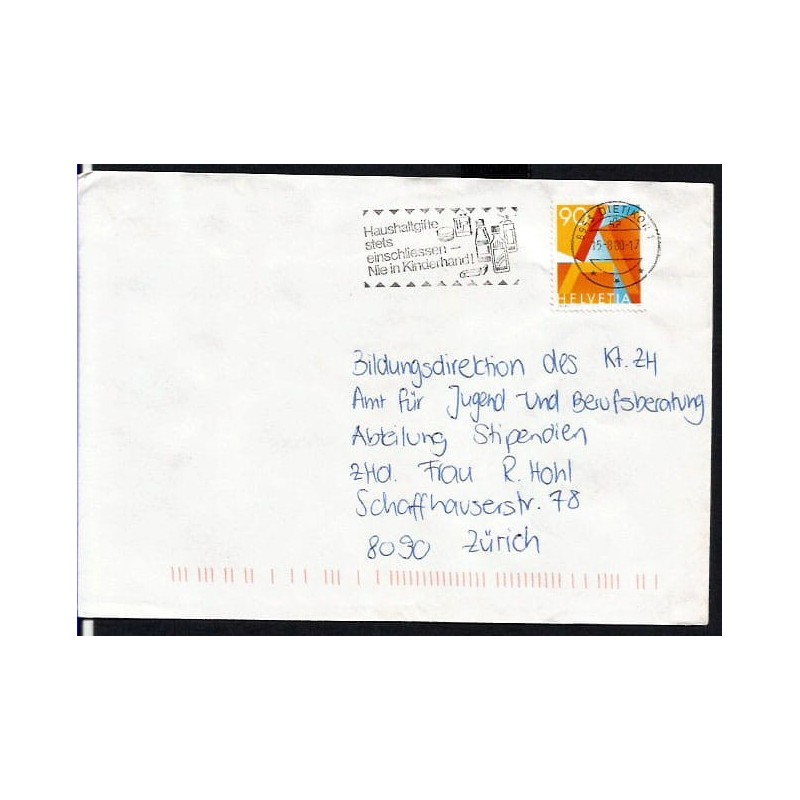 Haushaltgifte
stets
einschliessen –
Nie in Kinderhand!
90
8953 DIETIKON 1
15-8.00-17
HELVETIA
Bildungsdirektion des Kt. ZH
Amt für Jugend -und Berufsberatung
Abteilung Stipendien
zHd. Frau R. Hohl
Schaffhauserstr. 78
8090 Zürich